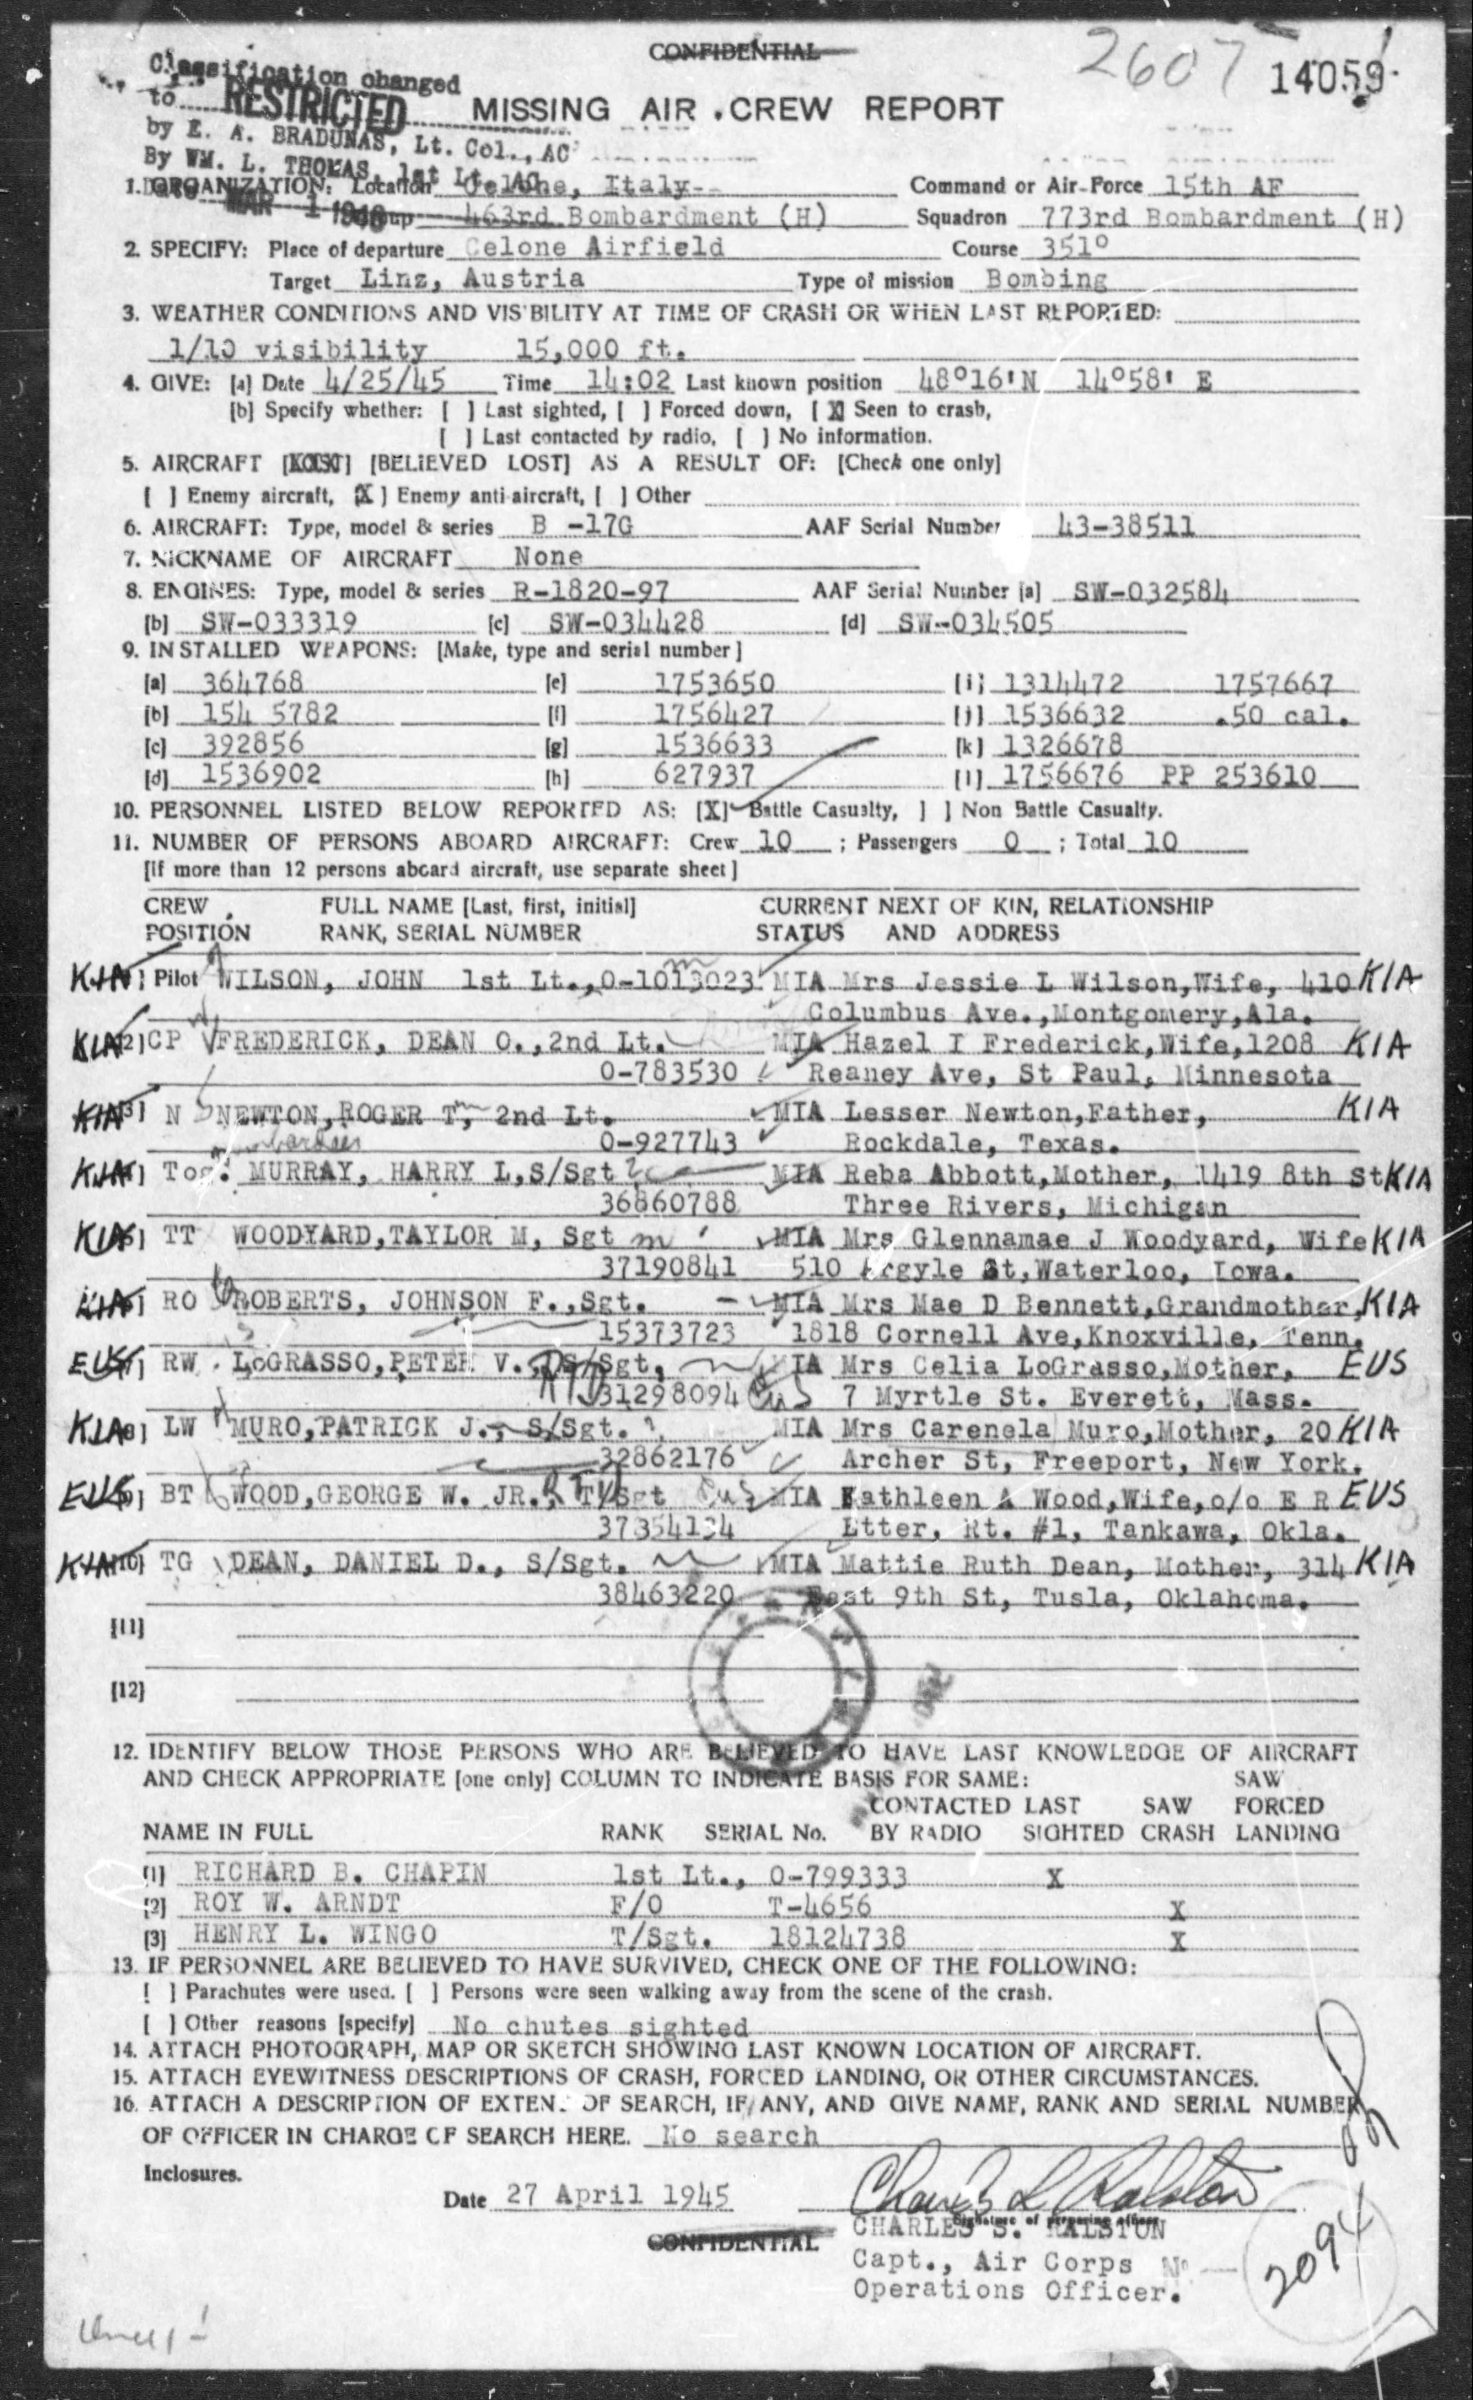 CONFIDENTIAL
2607 14059
Classification changed
to RESTRICTED
MISSING AIR CREW REPORT
by E. A. BRADUNAS, Lt. Col., AC
By WM. L. THOMAS, 1st Lt., AC
Date MAR 1 1946
1. ORGANIZATION: Location Celone, Italy Command or Air-Force 15th AF
Group 463rd Bombardment (H) Squadron 773rd Bombardment (H)
2. SPECIFY: Place of departure Celone Airfield Course 351°
Target Linz, Austria Type of mission Bombing
3. WEATHER CONDITIONS AND VISIBILITY AT TIME OF CRASH OR WHEN LAST REPORTED:
1/10 visibility 15,000 ft.
4. GIVE: [a] Date 4/25/45 Time 14:02 Last known position 48°16'N 14°58' E
[b] Specify whether: [ ] Last sighted, [ ] Forced down, [X] Seen to crash,
[ ] Last contacted by radio, [ ] No information.
5. AIRCRAFT [LOST] [BELIEVED LOST] AS A RESULT OF: [Check one only]
[ ] Enemy aircraft, [X] Enemy anti-aircraft, [ ] Other
6. AIRCRAFT: Type, model & series B -17G AAF Serial Number 43-38511
7. NICKNAME OF AIRCRAFT None
8. ENGINES: Type, model & series R-1820-97 AAF Serial Number [a] SW-032584
[b] SW-033319 [c] SW-034428 [d] SW--034505
9. INSTALLED WEAPONS: [Make, type and serial number]
[a] 364768 [e] 1753650 [i] 1314472 1757667
[b] 154 5782 [f] 1756427 [j] 1536632 .50 cal.
[c] 392856 [g] 1536633 [k] 1326678
[d] 1536902 [h] 627937 [l] 1756676 PP 253610
10. PERSONNEL LISTED BELOW REPORTED AS: [X] Battle Casualty, [ ] Non Battle Casualty.
11. NUMBER OF PERSONS ABOARD AIRCRAFT: Crew 10 ; Passengers 0 ; Total 10
[If more than 12 persons aboard aircraft, use separate sheet]
CREW FULL NAME [Last, first, initial] CURRENT NEXT OF KIN, RELATIONSHIP
POSITION RANK, SERIAL NUMBER STATUS AND ADDRESS
KIA [1] Pilot WILSON, JOHN 1st Lt., O-1013023 MIA Mrs Jessie L Wilson,Wife, 410 KIA
Columbus Ave.,Montgomery,Ala.
KIA [2] CP FREDERICK, DEAN O.,2nd Lt. MIA Hazel I Frederick,Wife,1208 KIA
O-783530 Reaney Ave, St Paul, Minnesota
KIA [3] N NEWTON,ROGER T, 2nd Lt. MIA Lesser Newton,Father, KIA
O-927743 Rockdale, Texas.
KIA [4] Tog. MURRAY, HARRY L,S/Sgt MIA Reba Abbott,Mother, 1419 8th St KIA
36860788 Three Rivers, Michigan
KIA [5] TT WOODYARD,TAYLOR M, Sgt MIA Mrs Glennamae J Woodyard, Wife KIA
37190841 510 Argyle St,Waterloo, Iowa.
KIA [6] RO ROBERTS, JOHNSON F.,Sgt. MIA Mrs Mae D Bennett,Grandmother, KIA
15373723 1818 Cornell Ave,Knoxville, Tenn.
EUS [7] RW LoGRASSO,PETER V., S/Sgt, MIA Mrs Celia LoGrasso,Mother, EUS
RTD 31298094 EUS 7 Myrtle St. Everett, Mass.
KIA [8] LW MURO,PATRICK J., S/Sgt. MIA Mrs Carenela Muro,Mother, 20 KIA
32862176 Archer St, Freeport, New York.
EUS [9] BT WOOD,GEORGE W. JR., RTD Sgt EUS MIA Kathleen A Wood,Wife,c/o E R EUS
37354134 Etter, Rt. #1, Tankawa, Okla.
KIA [10] TG DEAN, DANIEL D., S/Sgt. MIA Mattie Ruth Dean, Mother, 314 KIA
38463220 East 9th St, Tusla, Oklahoma.
[11]
[12]
12. IDENTIFY BELOW THOSE PERSONS WHO ARE BELIEVED TO HAVE LAST KNOWLEDGE OF AIRCRAFT
AND CHECK APPROPRIATE [one only] COLUMN TO INDICATE BASIS FOR SAME: SAW
CONTACTED LAST SAW FORCED
NAME IN FULL RANK SERIAL No. BY RADIO SIGHTED CRASH LANDING
[1] RICHARD B. CHAPIN 1st Lt., O-799333 X
[2] ROY W. ARNDT F/O T-4656 X
[3] HENRY L. WINGO T/Sgt. 18124738 X
13. IF PERSONNEL ARE BELIEVED TO HAVE SURVIVED, CHECK ONE OF THE FOLLOWING:
[ ] Parachutes were used. [ ] Persons were seen walking away from the scene of the crash.
[ ] Other reasons [specify] No chutes sighted
14. ATTACH PHOTOGRAPH, MAP OR SKETCH SHOWING LAST KNOWN LOCATION OF AIRCRAFT.
15. ATTACH EYEWITNESS DESCRIPTIONS OF CRASH, FORCED LANDING, OR OTHER CIRCUMSTANCES.
16. ATTACH A DESCRIPTION OF EXTENT OF SEARCH, IF ANY, AND GIVE NAME, RANK AND SERIAL NUMBER
OF OFFICER IN CHARGE OF SEARCH HERE. No search
Inclosures.
Date 27 April 1945 Charles S Ralston
Signature of preparing officer
CONFIDENTIAL CHARLES S. RALSTON
Capt., Air Corps
Operations Officer.
2094